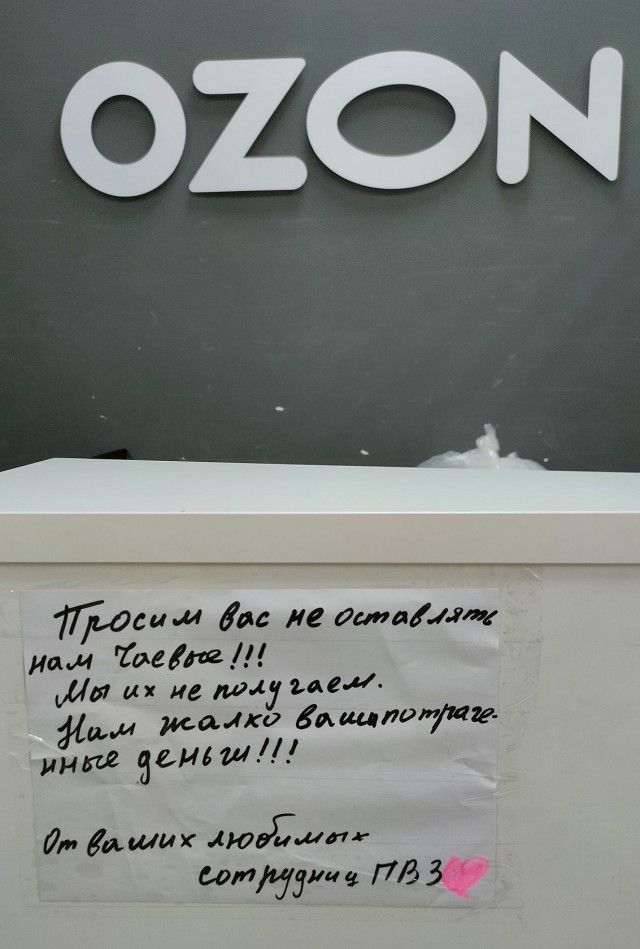 OZON
Просим вас не оставлять
нам Чаевые!!!
Мы их не получаем.
Нам жалко ваши потраче-
нные деньги!!!
От ваших любимых
сотрудниц ПВЗ